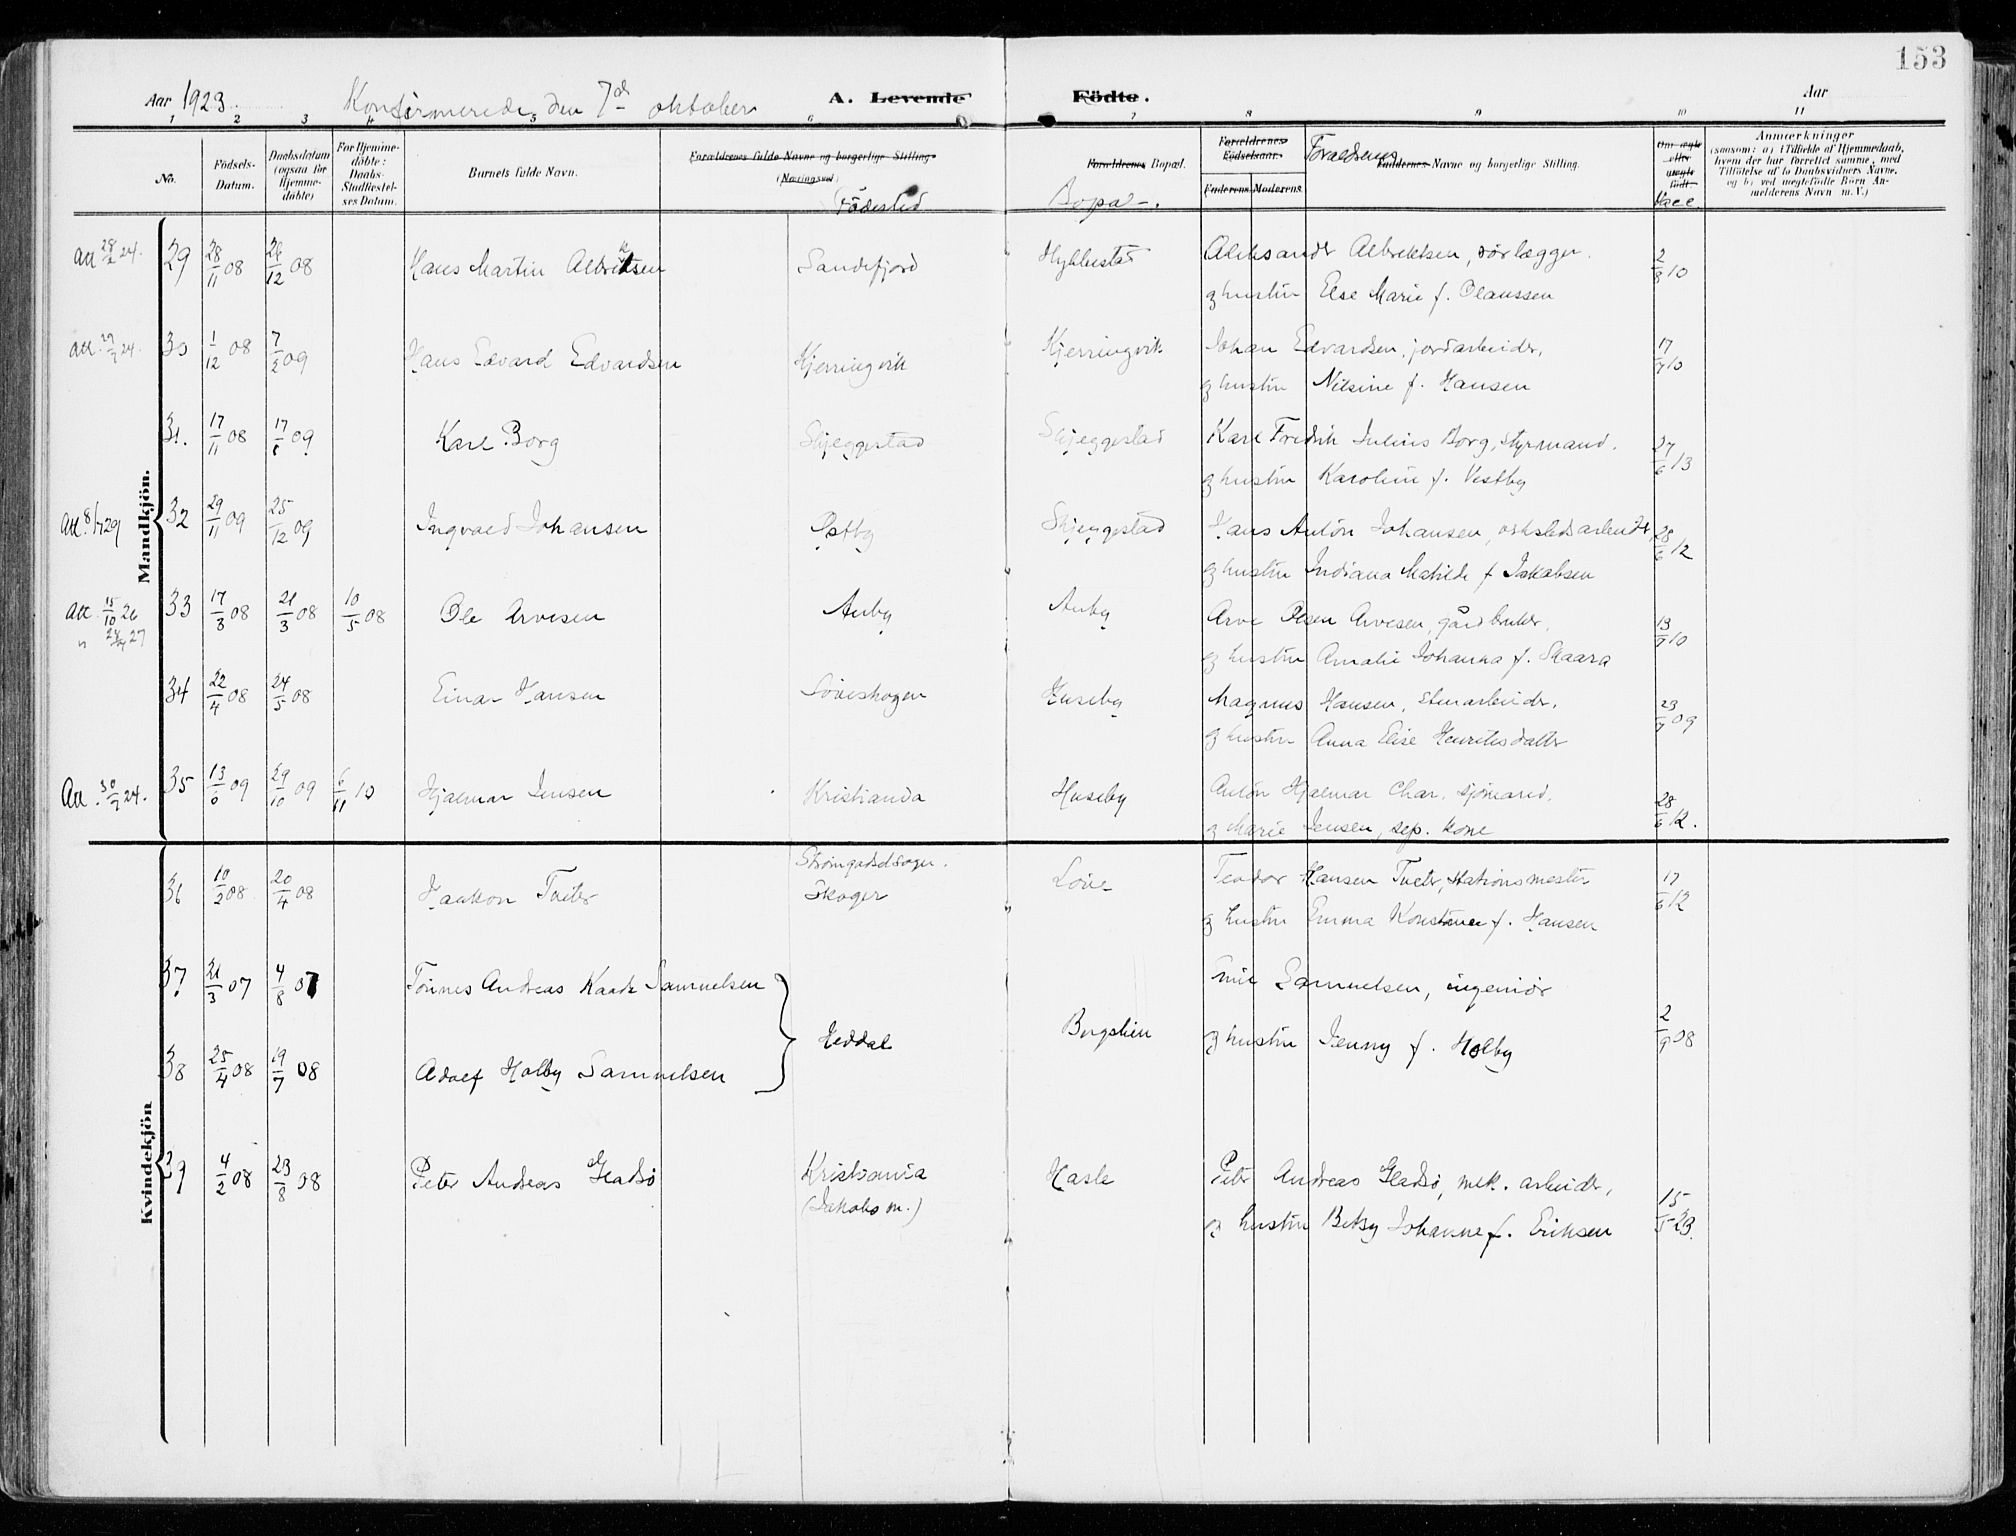 153
Aar 1923. Konfirmerede den 7de oktober A. Levende Födte. Aar
1 2 3 4 5 6 7 8 9 10 11
No.
Födsels-Datum.
Daabsdatum (ogsaa for Hjemme-döbte)
For Hjemme-döbte: Daabs-Stadfæstel-ses Datum.
Barnets fulde Navn.
Forældrenes fulde Navne og borgerlige Stilling (Næringsvei)
Födested
Forældrenes Bopæl.
Bopæl.
Forældrenes Födselsaar.
Faderens Moderens
Forældrenes
Faddernes Navne og borgerlige Stilling.
Om ægte eller uægte födt.
Vacc.
Anmærkninger
(saasom: a) i Tilfælde af Hjemmedaab, hvem der har forrettet samme, med Tilföielse af to Daabsvidners Navne, og b) ved uægtefödte Börn Anmelderens Navn m. V.)
Mandkjön.
Att 28/2 24. 29 28/11 08 26/12 08 Hans Martin Albriktsen Sandefjord Hybbestad Aleksander Albrektsen, rörlægger. 2/8 10
og hustru Else Marie f. Olaussen
Att. 29/2 24. 30 1/12 08 7/2 09 Hans Edvard Edvardsen Kjerringvik Kjerringvik Johan Edvardsen, jordarbeider, 17/7 10
og hustru Nilsine f. Hansen
31. 17/11 08 17/5 09 Karl Borg Skjeggestad Skjeggestad Karl Fredrik Julius Borg, styrmand. 27/6 13
og hustru Karoline f. Vestby
Att. 8/7 29 32 29/11 09 25/12 09 Ingvald Johansen Østby Skjeggestad Hans Anton Johansen, verkstedsarbeider 28/6 12
og hustru Indiana Matilde f Jakobsen
Att. 15/10 26 33 17/3 08 21/3 08 10/5 08 Ole Arvesen Auby Auby Arve Olsen Arvesen, gårdbruker. 13/7 10
" 28/4 27 og hustru Amalie Johanna f. Skaara
34 22/4 08 24/5 08 Einar Hansen Löveskogen Huseby Magnus Hansen, stenarbeider. 23/7 09
og hustru Anna Elise Henriksdatter
Att. 30/7 24. 35 13/6 09 29/10 09 6/11 10 Hjalmar Jensen Kristiania Huseby Anton Hjalmar Char. sjömand. 28/6 12.
og Marie Jensen, sep. kone
Kvindekjön
36 10/2 08 20/4 08 Haakon Tveter Strömgodsdsogn. Skoger Löve Teodor Hansen Tveter, stationsmester 17/6 12
og hustru Emma Konstanse f. Hansen
37 21/3 07 4/8 07 Tönnes Andreas Kaade Samuelsen Samuelsen, ingeniör
Heddal Bergslien og hustru Jenny f. Holby 2/9 08
38 25/4 08 19/7 08 Adolf Holby Samuelsen
39 4/2 08 23/8 08 Peter Andreas Gladsö Kristiania (Jakobs m.) Hasle Peter Andreas Gladsö, mek. arbeider, 15/5 23.
og hustru Betsy Johanne f. Eriksen